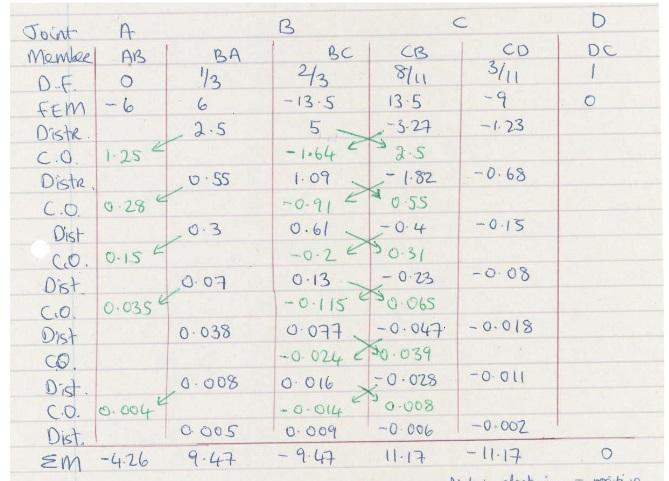 Joint A B C D
Member AB BA BC CB CD DC
D.F. 0 1/3 2/3 8/11 3/11 1
FEM -6 6 -13.5 13.5 -9 0
Distr. 2.5 5 -3.27 -1.23
C.O. 1.25 -1.64 2.5
Distr. 0.55 1.09 -1.82 -0.68
C.O. 0.28 -0.91 0.55
Dist 0.3 0.61 -0.4 -0.15
C.O. 0.15 -0.2 0.31
Dist. 0.07 0.13 -0.23 -0.08
C.O. 0.035 -0.115 0.065
Dist 0.038 0.077 -0.047 -0.018
CO. -0.024 0.039
Dist. 0.008 0.016 -0.028 -0.011
C.O. 0.004 -0.014 0.008
Dist. 0.005 0.009 -0.006 -0.002
ΣM -4.26 9.47 -9.47 11.17 -11.17 0